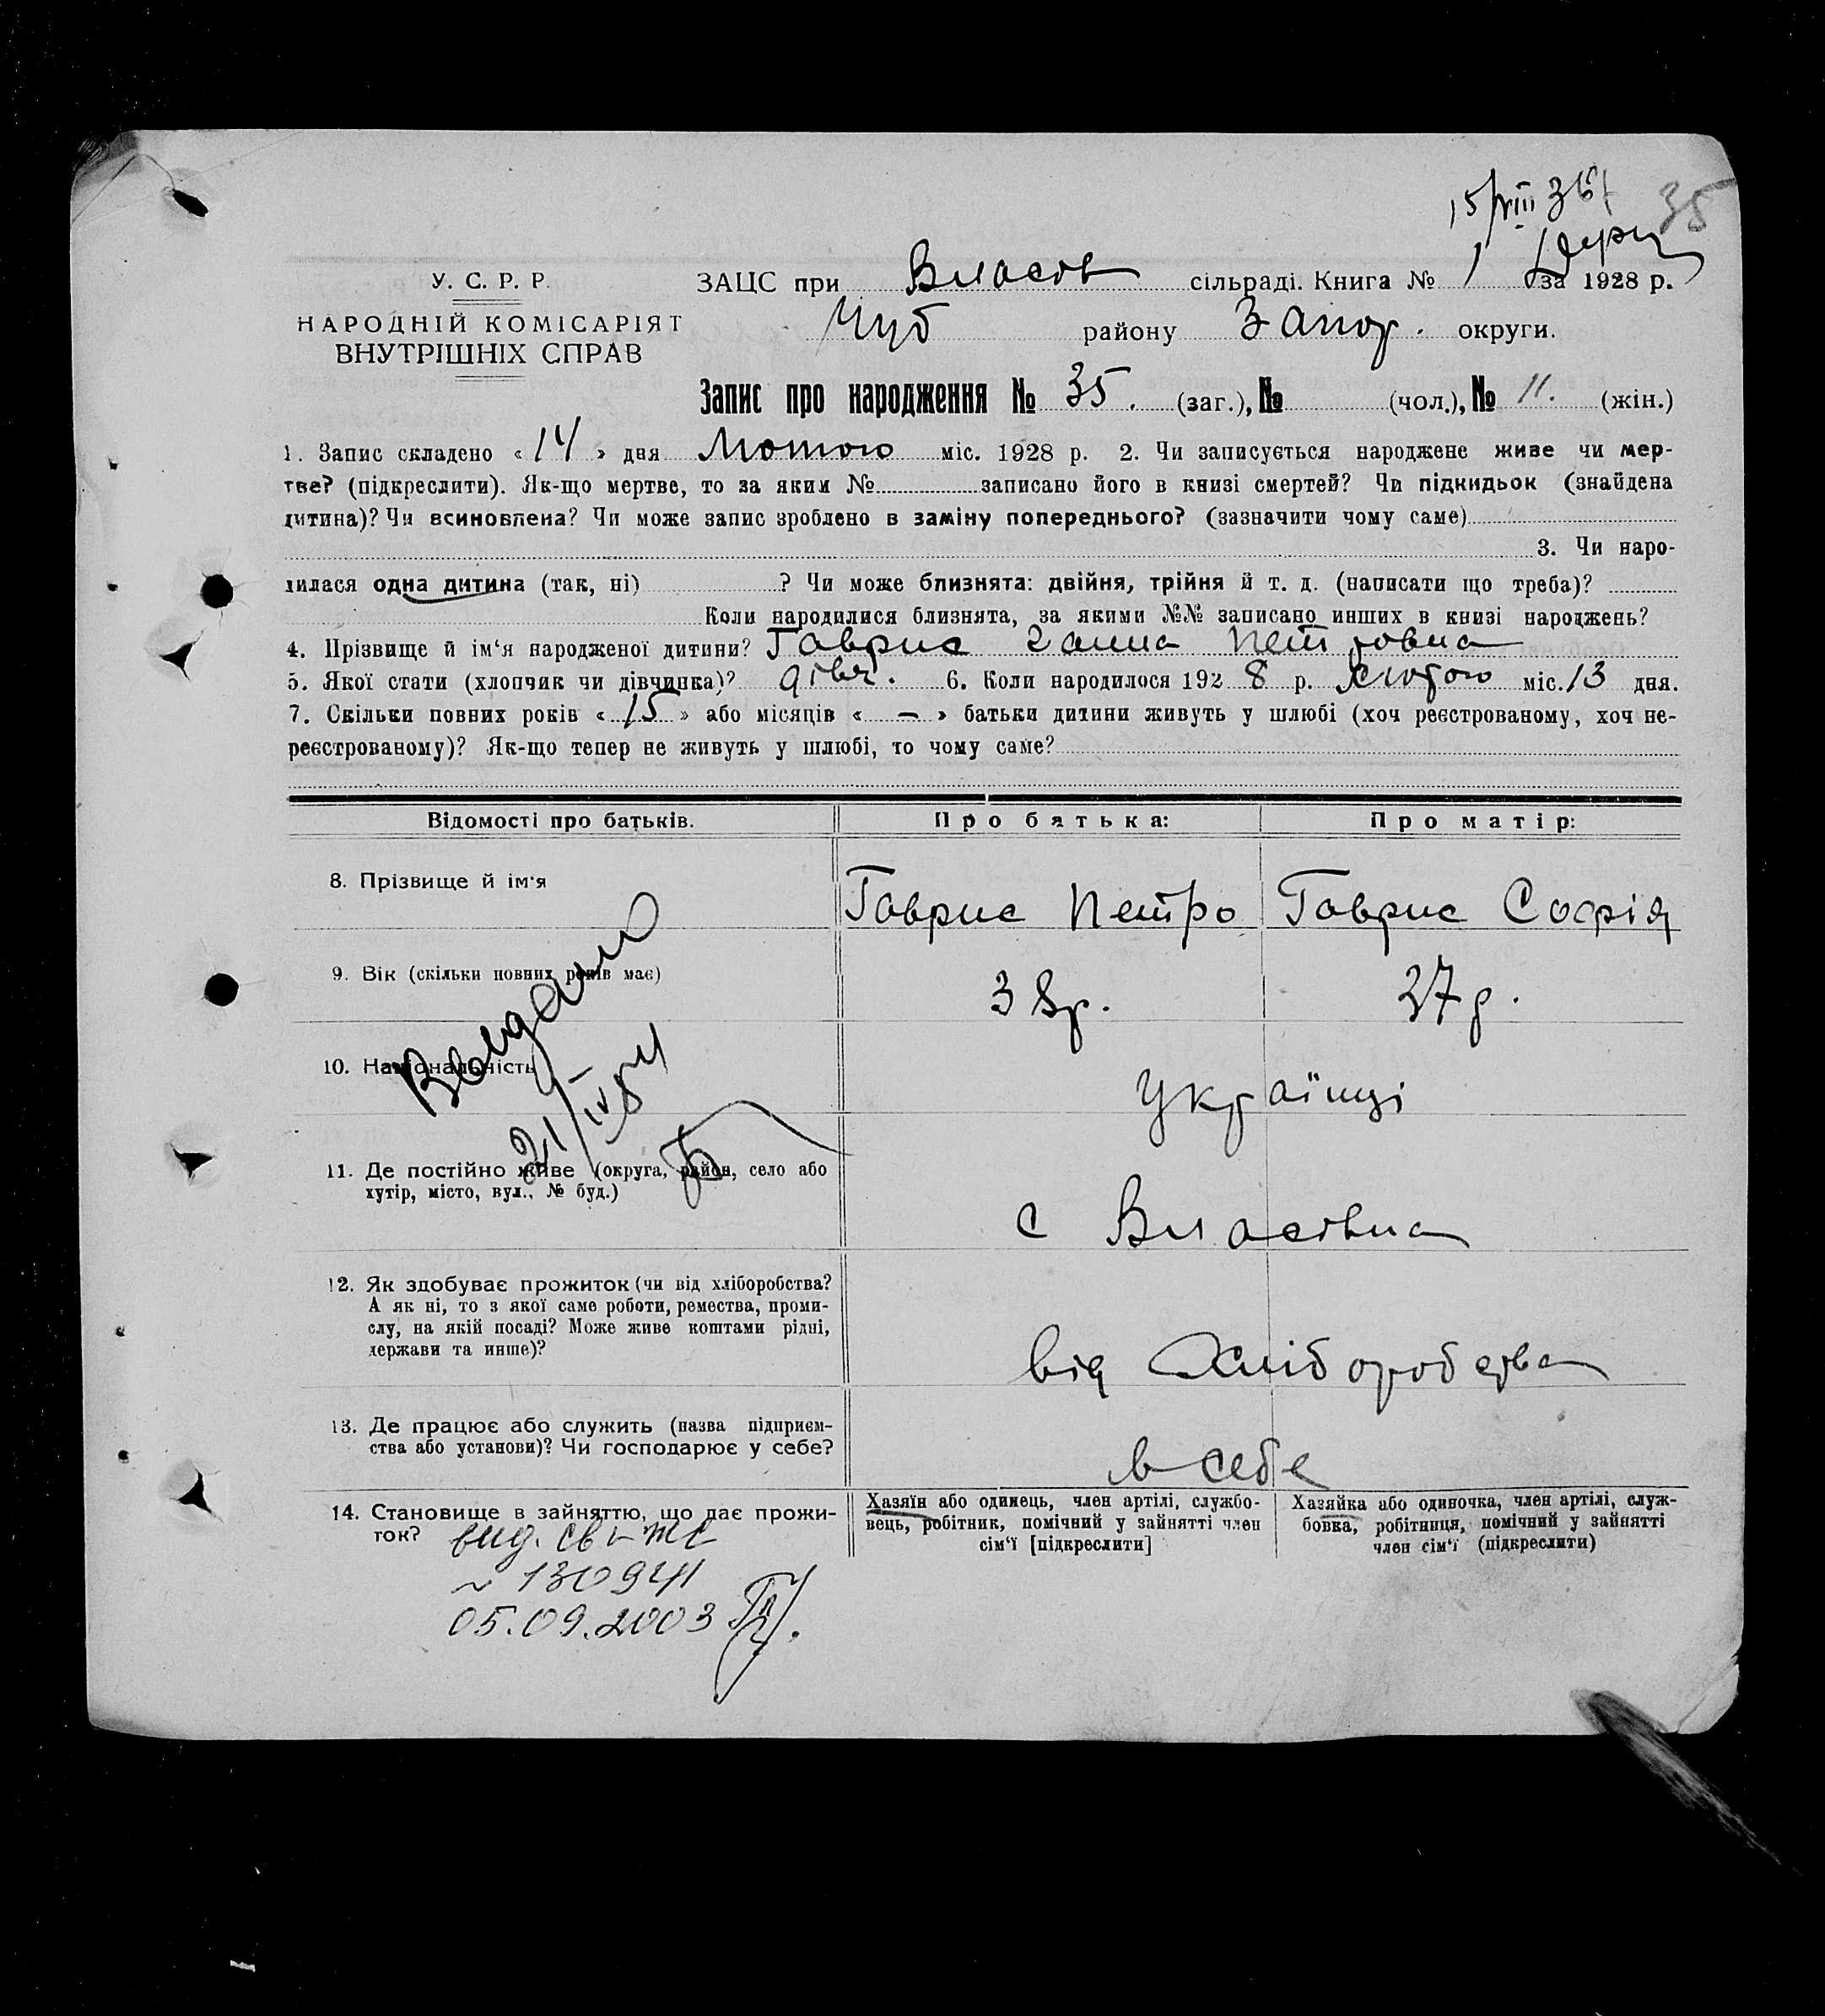 15/VIII 36
35
У. С. Р. Р.
НАРОДНІЙ КОМІСАРІЯТ
ВНУТРІШНІХ СПРАВ
ЗАЦС при Власів сільраді. Книга № 1 за 1928 р.
Чуб району Запор. округи.
Запис про народження № 35. (заг.), № (чол.), № 11. (жін.)
1. Запис складено «14» дня Лютого міс. 1928 р. 2. Чи записується народжене живе чи мер-
тве? (підкреслити). Як-що мертве, то за яким № записано його в книзі смертей? Чи підкидьок (знайдена
дитина)? Чи всиновлена? Чи може запис зроблено в заміну попереднього? (зазначити чому саме)
3. Чи наро-
дилася одна дитина (так, ні) ? Чи може близнята: двійня, трійня й т. д. (написати що треба)?
Коли народилися близнята, за якими №№ записано инших в книзі народжень?
4. Прізвище й ім‘я народженої дитини? Гаврис Ганна Петровна
5. Якої стати (хлопчик чи дівчинка)? дівч. 6. Коли народилося 1928 р. Лютого міс. 13 дня.
7. Скільки повних років «15» або місяців «—» батьки дитини живуть у шлюбі (хоч реєстрованому, хоч не-
реєстрованому)? Як-що тепер не живуть у шлюбі, то чому саме?
Відомості про батьків. Про батька: Про матір:
8. Прізвище й ім‘я Гаврис Петро Гаврис Софія
9. Вік (скільки повних років має) 38р. 37р.
10. Національність Українці
Выдано
21/IV 54
11. Де постійно живе (округа, район, село або
хутір, місто, вул., № буд.)
с Власівка
12. Як здобуває прожиток (чи від хліборобства?
А як ні, то з якої саме роботи, ремества, проми-
слу, на якій посаді? Може живе коштами рідні,
держави та инше)?
від Хліборобства
13. Де працює або служить (назва підприєм-
ства або установи)? Чи господарює у себе?
в себе
14. Становище в зайняттю, що дає прожи-
ток?
Хазяїн або одинець, член артілі, службо-
вець, робітник, помічний у зайнятті член
сім‘ї [підкреслити]
Хазяйка або одиночка, член артілі, служ-
бовка, робітниця, помічний у зайнятті
член сім‘ї (підкреслити)
вид. св-
130941
05.09.2003